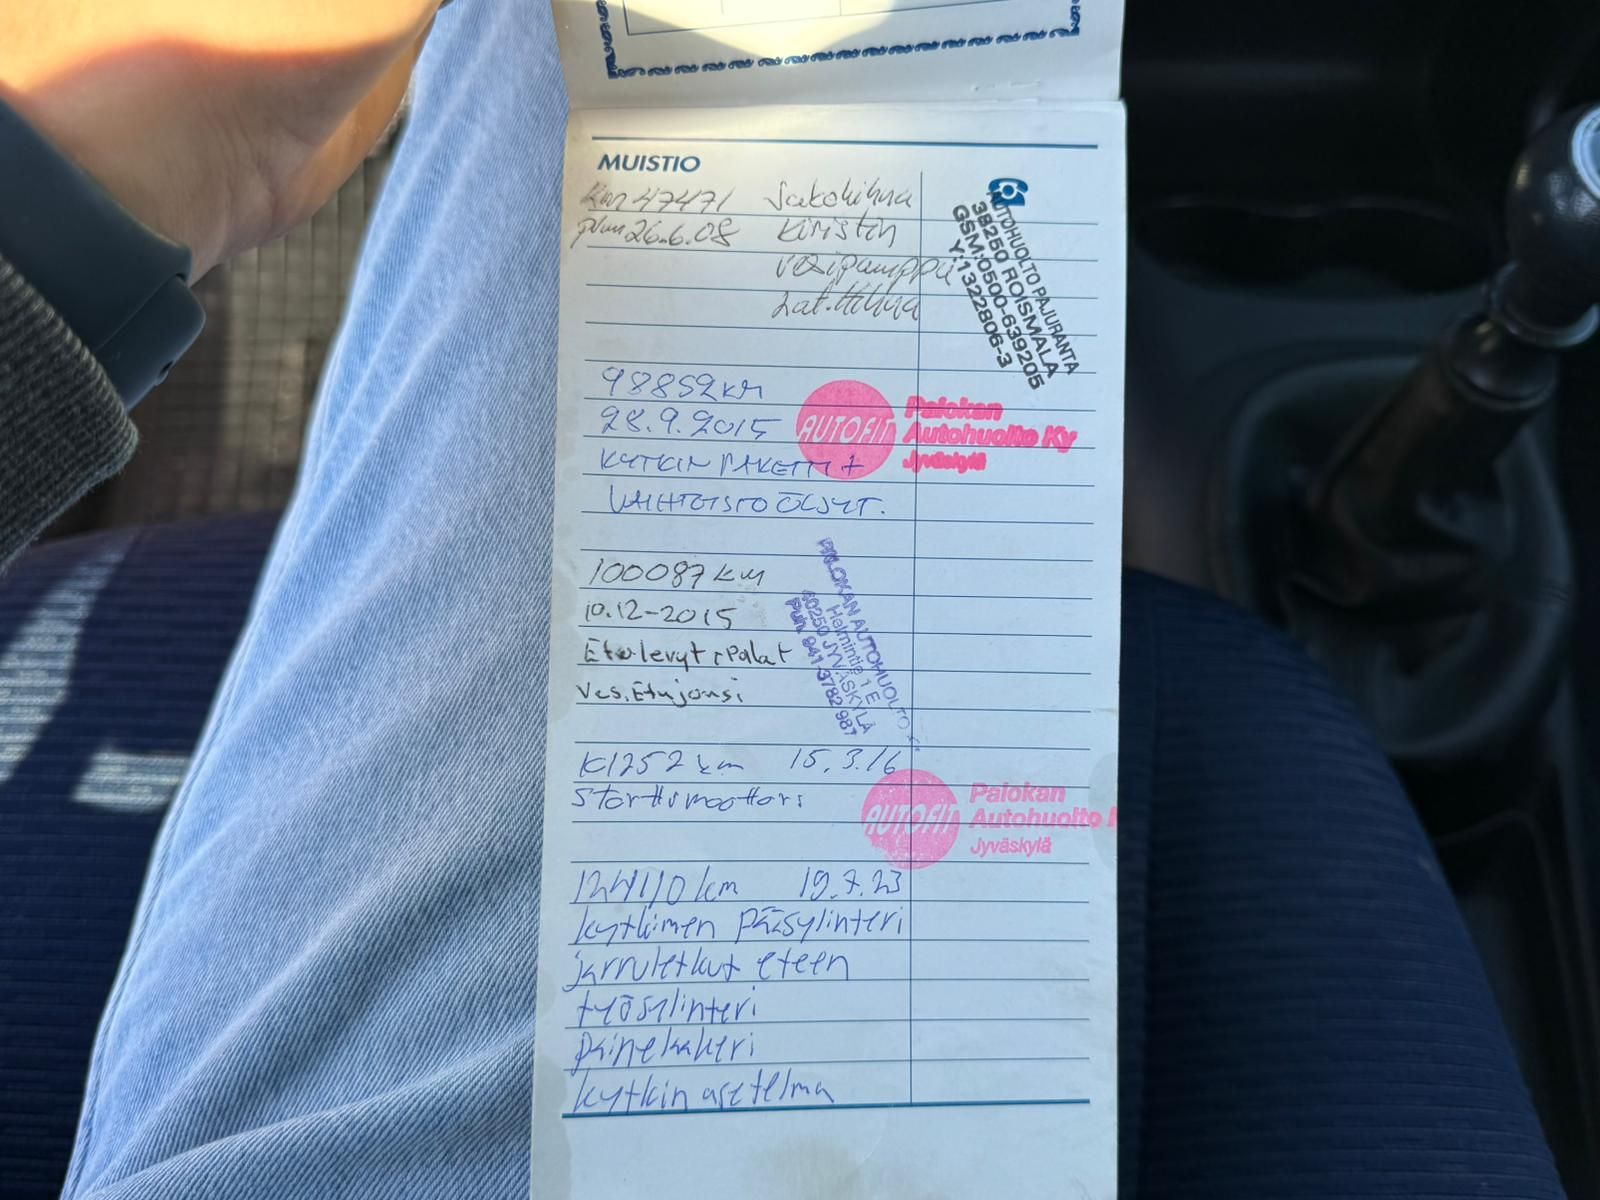 MUISTIO
km 47471 Jakohihna
pvm 26.6.08 Kiristin
vesipumppu
Lat.Hihna
AUTOHUOLTO PAJURANTA
38250 ROISMALA
GSM:0500-639205
Y:1322806-3
98852 KM
28.9.2015
KYTKIN PAKETTI +
VAIHTEISTO ÖLJYT.
AUTOFIT
Palokan
Autohuolto Ky
Jyväskylä
100087 km
10.12-2015
Etu.levyt + Palat
Vas. Etujousi
PALOKAN AUTOHUOLTO
Helmintie 1 E
40250 JYVÄSKYLÄ
Puh. 941-3782 987
1252 km 15.3.16
Starttimoottori
AUTOFIT
Palokan
Autohuolto
Jyväskylä
124110 km 19.7.23
kytkimen pääsylinteri
jarruletkut eteen
työsylinteri
painelaakeri
kytkin asetelma